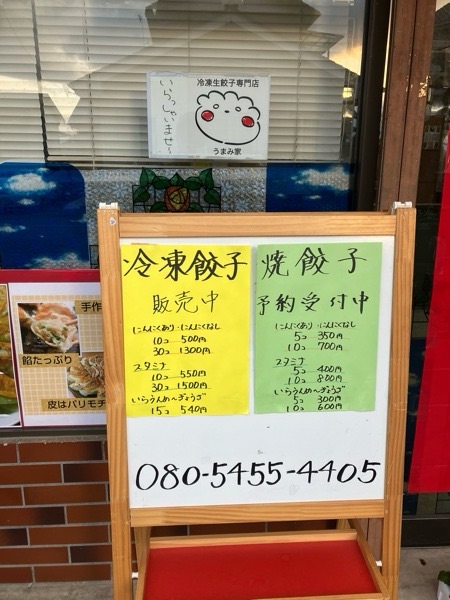 冷凍生餃子専門店
いらっしゃいませ〜
うまみ家
冷凍餃子
販売中
にんにくあり・にんにくなし
10コ 500円
30コ 1300円
スタミナ
10コ 550円
30コ 1500円
いらうんめ〜ぎょうざ
15コ 540円
焼餃子
予約受付中
にんにくあり・にんにくなし
5コ 350円
10コ 700円
スタミナ
5コ 400円
10コ 800円
いらうんめ〜ぎょうざ
5コ 300円
10コ 600円
手作
餡たっぷり
皮はパリモチ
080-5455-4405